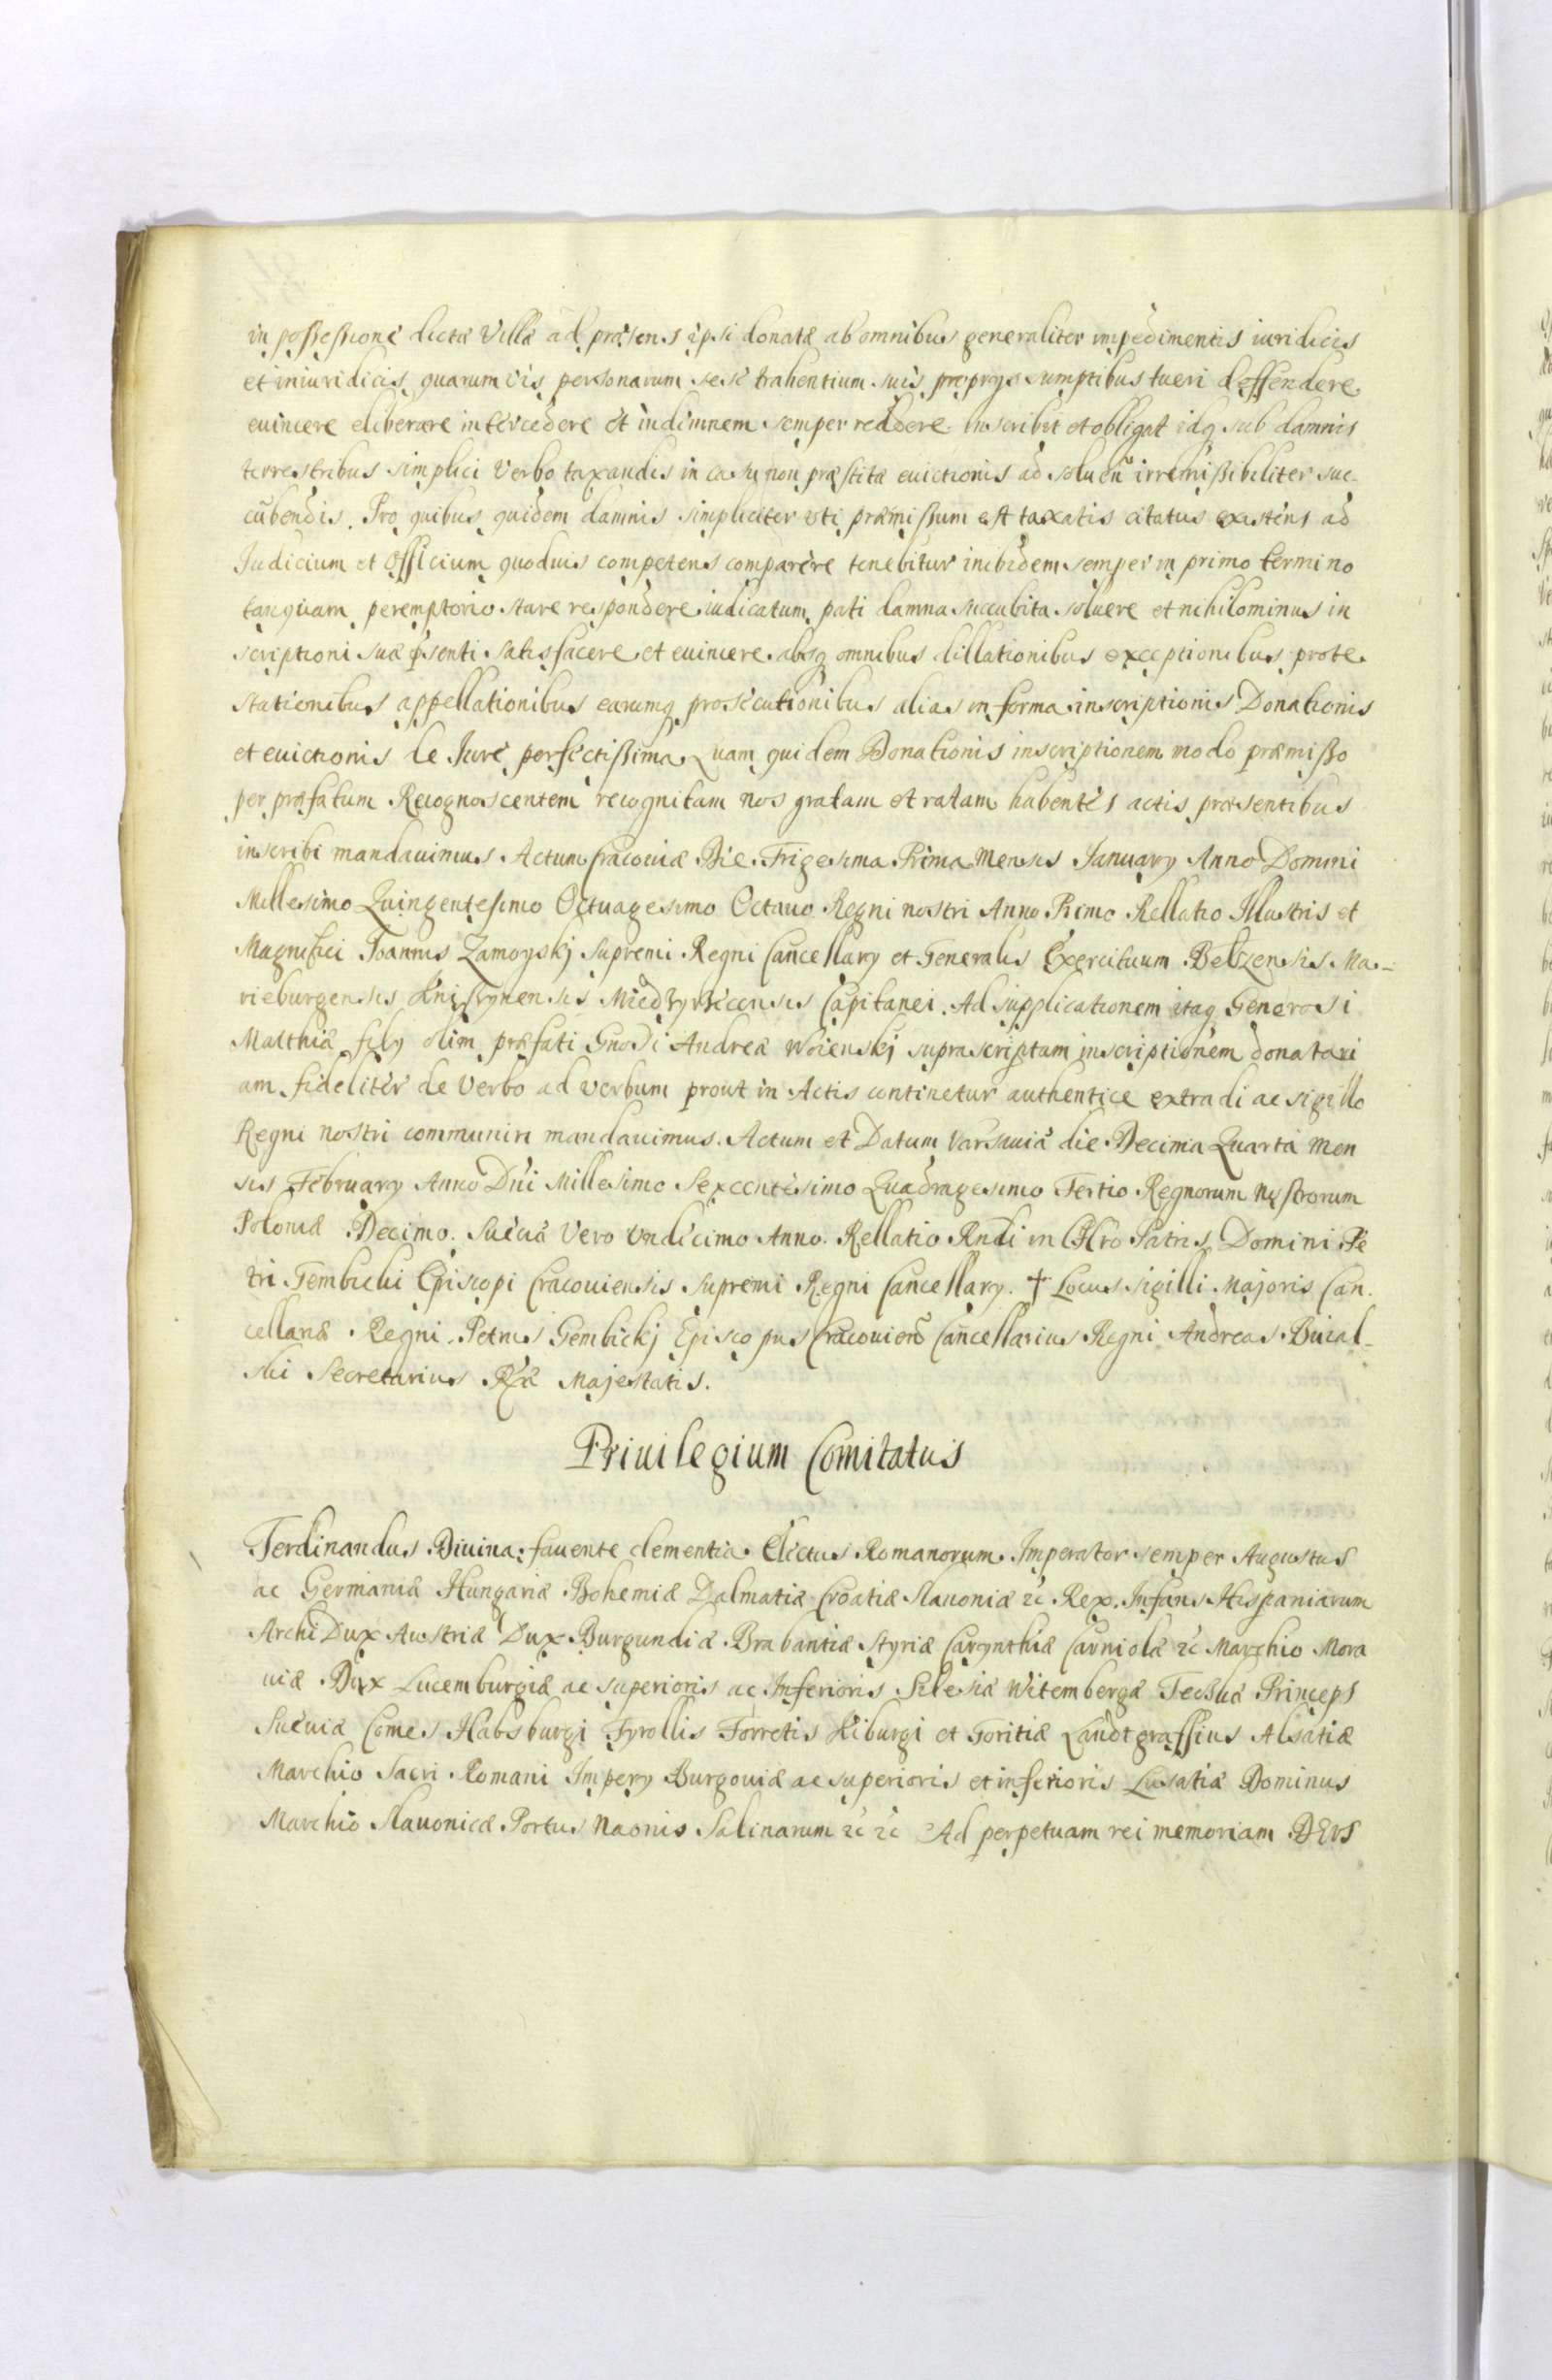 in possessione dictæ Villæ ad præsens ipsi donatæ ab omnibus generaliter impedimentis iuridicis
et iniuridicis quarum vis personarum sese trahentium suis proprys sumptibus tueri deffendere
euincere eliberare intercedere et indemnem semper reddere inscribit et obligat idq sub damnis
terrestribus simplici verbo taxandis in casu non præstitæ euictionis ad soluen irremissibiliter suc-
cubendis. Pro quibus quidem damnis simpliciter vti præmissum est taxatis citatus existens ad
Judicium et Officium quoduis competens comparere tenebitur inibidem semper in primo termino
tanquam peremptorio stare respondere iudicatum pati damna succubita soluere et nihilominus in
scriptioni suæ psenti satisfacere et euincere absq omnibus dillationibus exceptionibus prote
stationibus appellationibus earumq prosecutionibus alias in forma inscriptionis Donationis
et euictionis de Jure perfectissima Quam quidem Donationis inscriptionem modo præmisso
per præfatum Recognoscentem recognitam nos gratam et ratam habentes actis præsentibus
inscribi mandauimus. Actum Cracouiæ Die Trigesima Prima Mensis January Anno Domini
Millesimo Quingentesimo Octuagesimo Octauo Regni nostri Anno Primo Rellatio Illustris et
Magnifici Joannis Zamoyskj Supremi Regni Cancellary et Generalis Exercituum Belzensis Ma-
rieburgensis Kniszynensis Miedzyrzecensis Capitanei. Ad supplicationem itaq Generosi
Matthiæ fily olim præfati Gnosi Andreæ Woienskj suprascriptam inscriptionem donatori
am fideliter de Verbo ad verbum prout in Actis continetur authentice extradi ac sigillo
Regni nostri communiri mandauimus. Actum et Datum Varsauiæ die Decima Quarta Men
sis February Anno Dni Millesimo Sexcentesimo Quadragesimo Tertio Regnorum Nostrorum
Poloniæ Decimo. Sueciæ Vero Vndecimo Anno. Rellatio Rndi in Chro Patris Domini Pe
tri Gembicki Episcopi Cracouiensis Supremi Regni Cancellary. † Locus Sigilli Majoris Can.
cellariæ Regni. Petrus Gembickj Episcopus Cracouien Cancellarius Regni Andreas
ski Secretarius Ræ Majestatis.
Priuilegium Comitatus
Ferdinandus Diuina fauente clementia Electus Romanorum Imperator semper Augustus
ac Germaniæ Hungariæ Bohemiæ Dalmatiæ Croatiæ Slauoniæ &c Rex. Infans Hispaniarum
ArchiDux Austriæ Dux Burgundiæ Brabantiæ Styriæ Carynthiæ Carniolæ &c Marchio Mora
uiæ Dux Lucemburgiæ ac superioris ac Inferioris Silesiæ Witembergæ Teckæ Princeps
Sueuiæ Comes Habsburgi Tyrollis Forretis Kiburgi et Goritiæ Landtgraffius Alsatiæ
Marchio Sacri Romani Impery Burgouiæ ac superioris et inferioris Lusatiæ Dominus
Marchio Slauonicæ Portus Naonis Salinarum &c &c Ad perpetuam rei memoriam DEVS